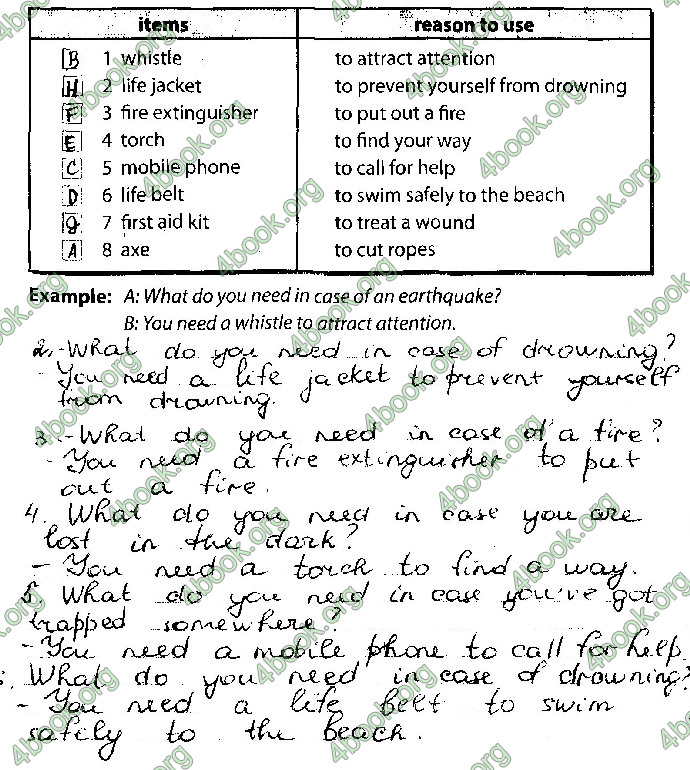 items reason to use
B 1 whistle to attract attention
H 2 life jacket to prevent yourself from drowning
F 3 fire extinguisher to put out a fire
E 4 torch to find your way
C 5 mobile phone to call for help
D 6 life belt to swim safely to the beach
g 7 first aid kit to treat a wound
A 8 axe to cut ropes
Example: A: What do you need in case of an earthquake?
B: You need a whistle to attract attention.
2. - What do you need in case of drowning?
- You need a life jacket to prevent yourself
from drowning.
3. - What do you need in case of a fire?
- You need a fire extinguisher to put
out a fire.
4. What do you need in case you are
lost in the dark?
- You need a torch to find a way.
5. What do you need in case you've got
trapped somewhere?
- You need a mobile phone to call for help.
What do you need in case of drowning?
- You need a life belt to swim
safely to the beach.
4book.org